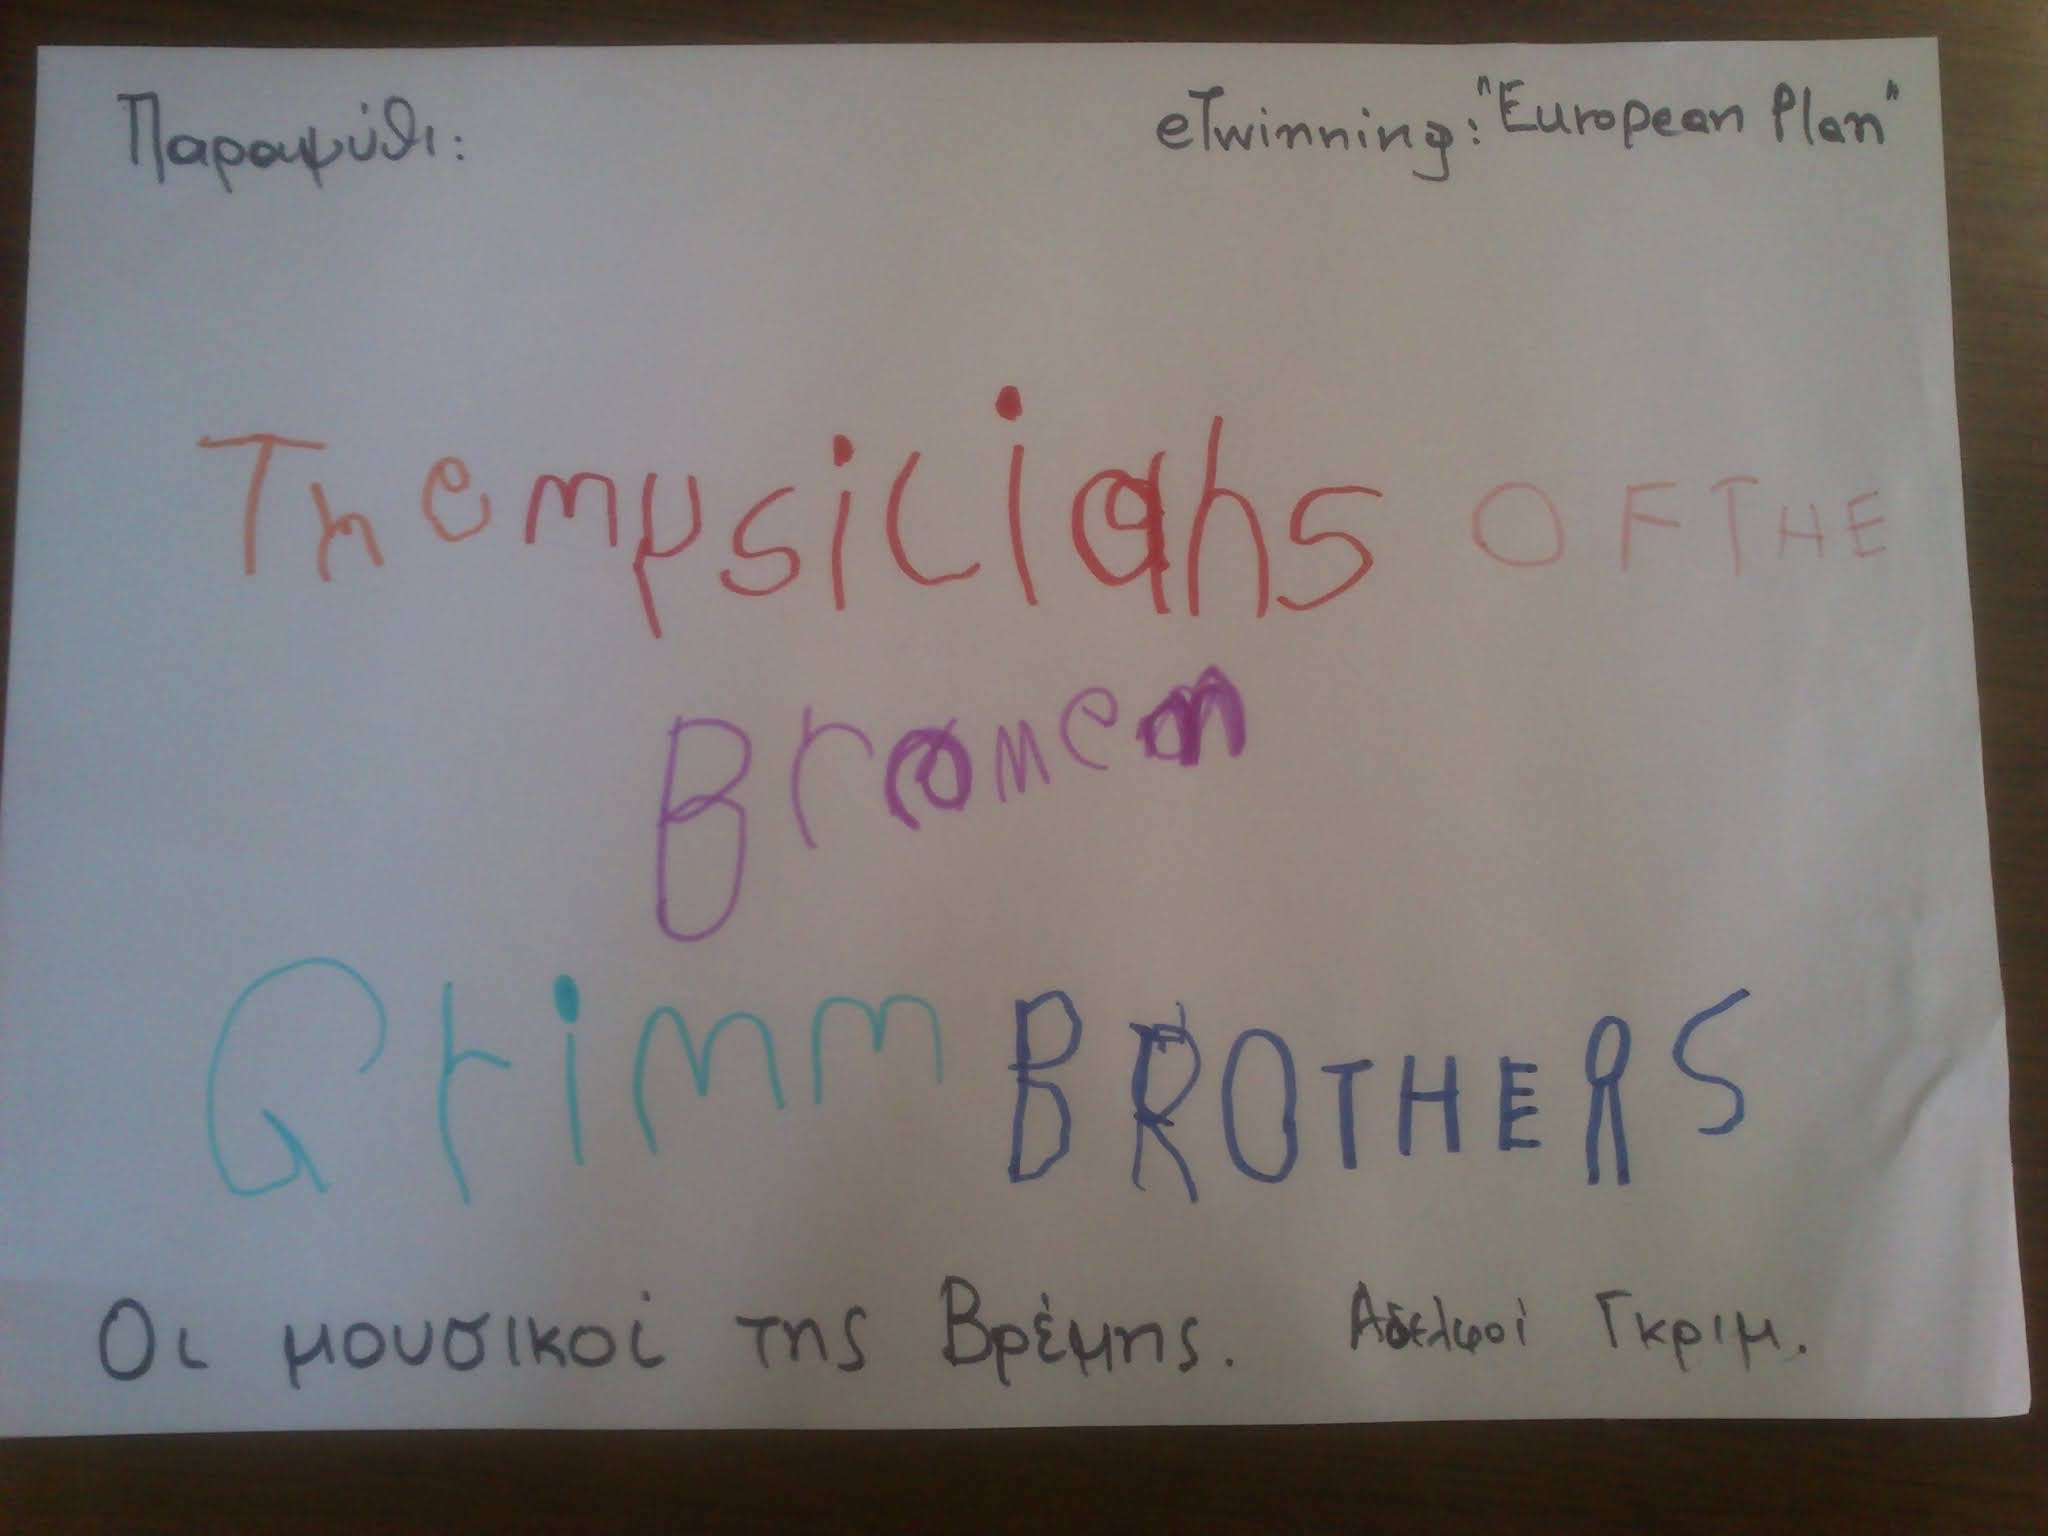 Παραμύθι:
eTwinning: "European Plan"
The mysicians OF THE
Bramen
Grimm BROTHERS
Οι μουσικοί της Βρέμης. Αδελφοί Γκριμ.